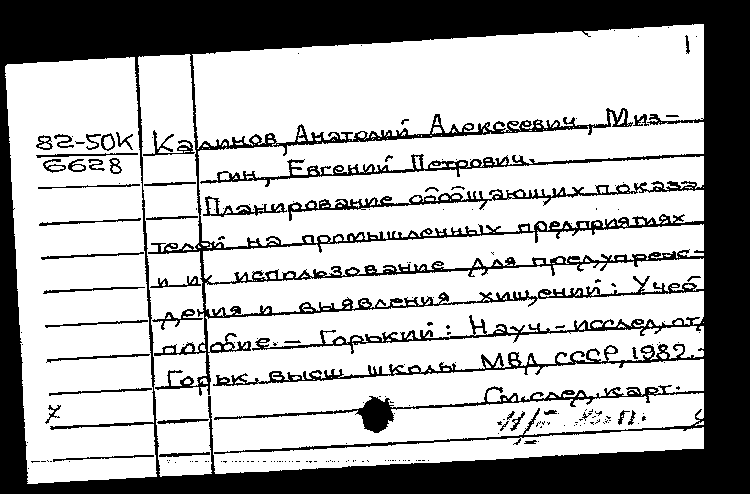 1
82-50К Калинов, Анатолий Алексеевич, Миз-
6628 гин, Евгений Петрович.
Планирование обобщающих показа-
телей на промышленных предприятиях
и их использование для предупреж-
дения и выявления хищений: Учеб
пособие. – Горький: Науч.-исслед. отд
Горьк. высш. школы МВД СССР, 1982. -
См. след. карт.